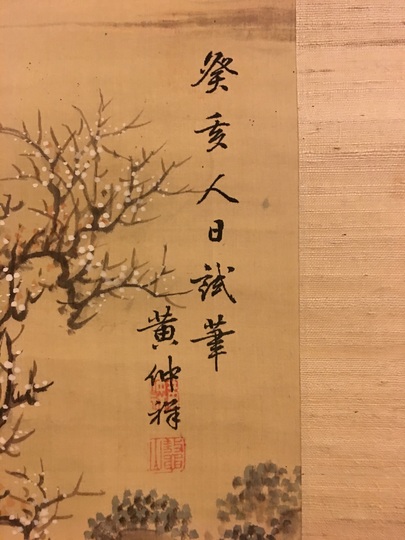 癸亥人日試筆
黄仲祥